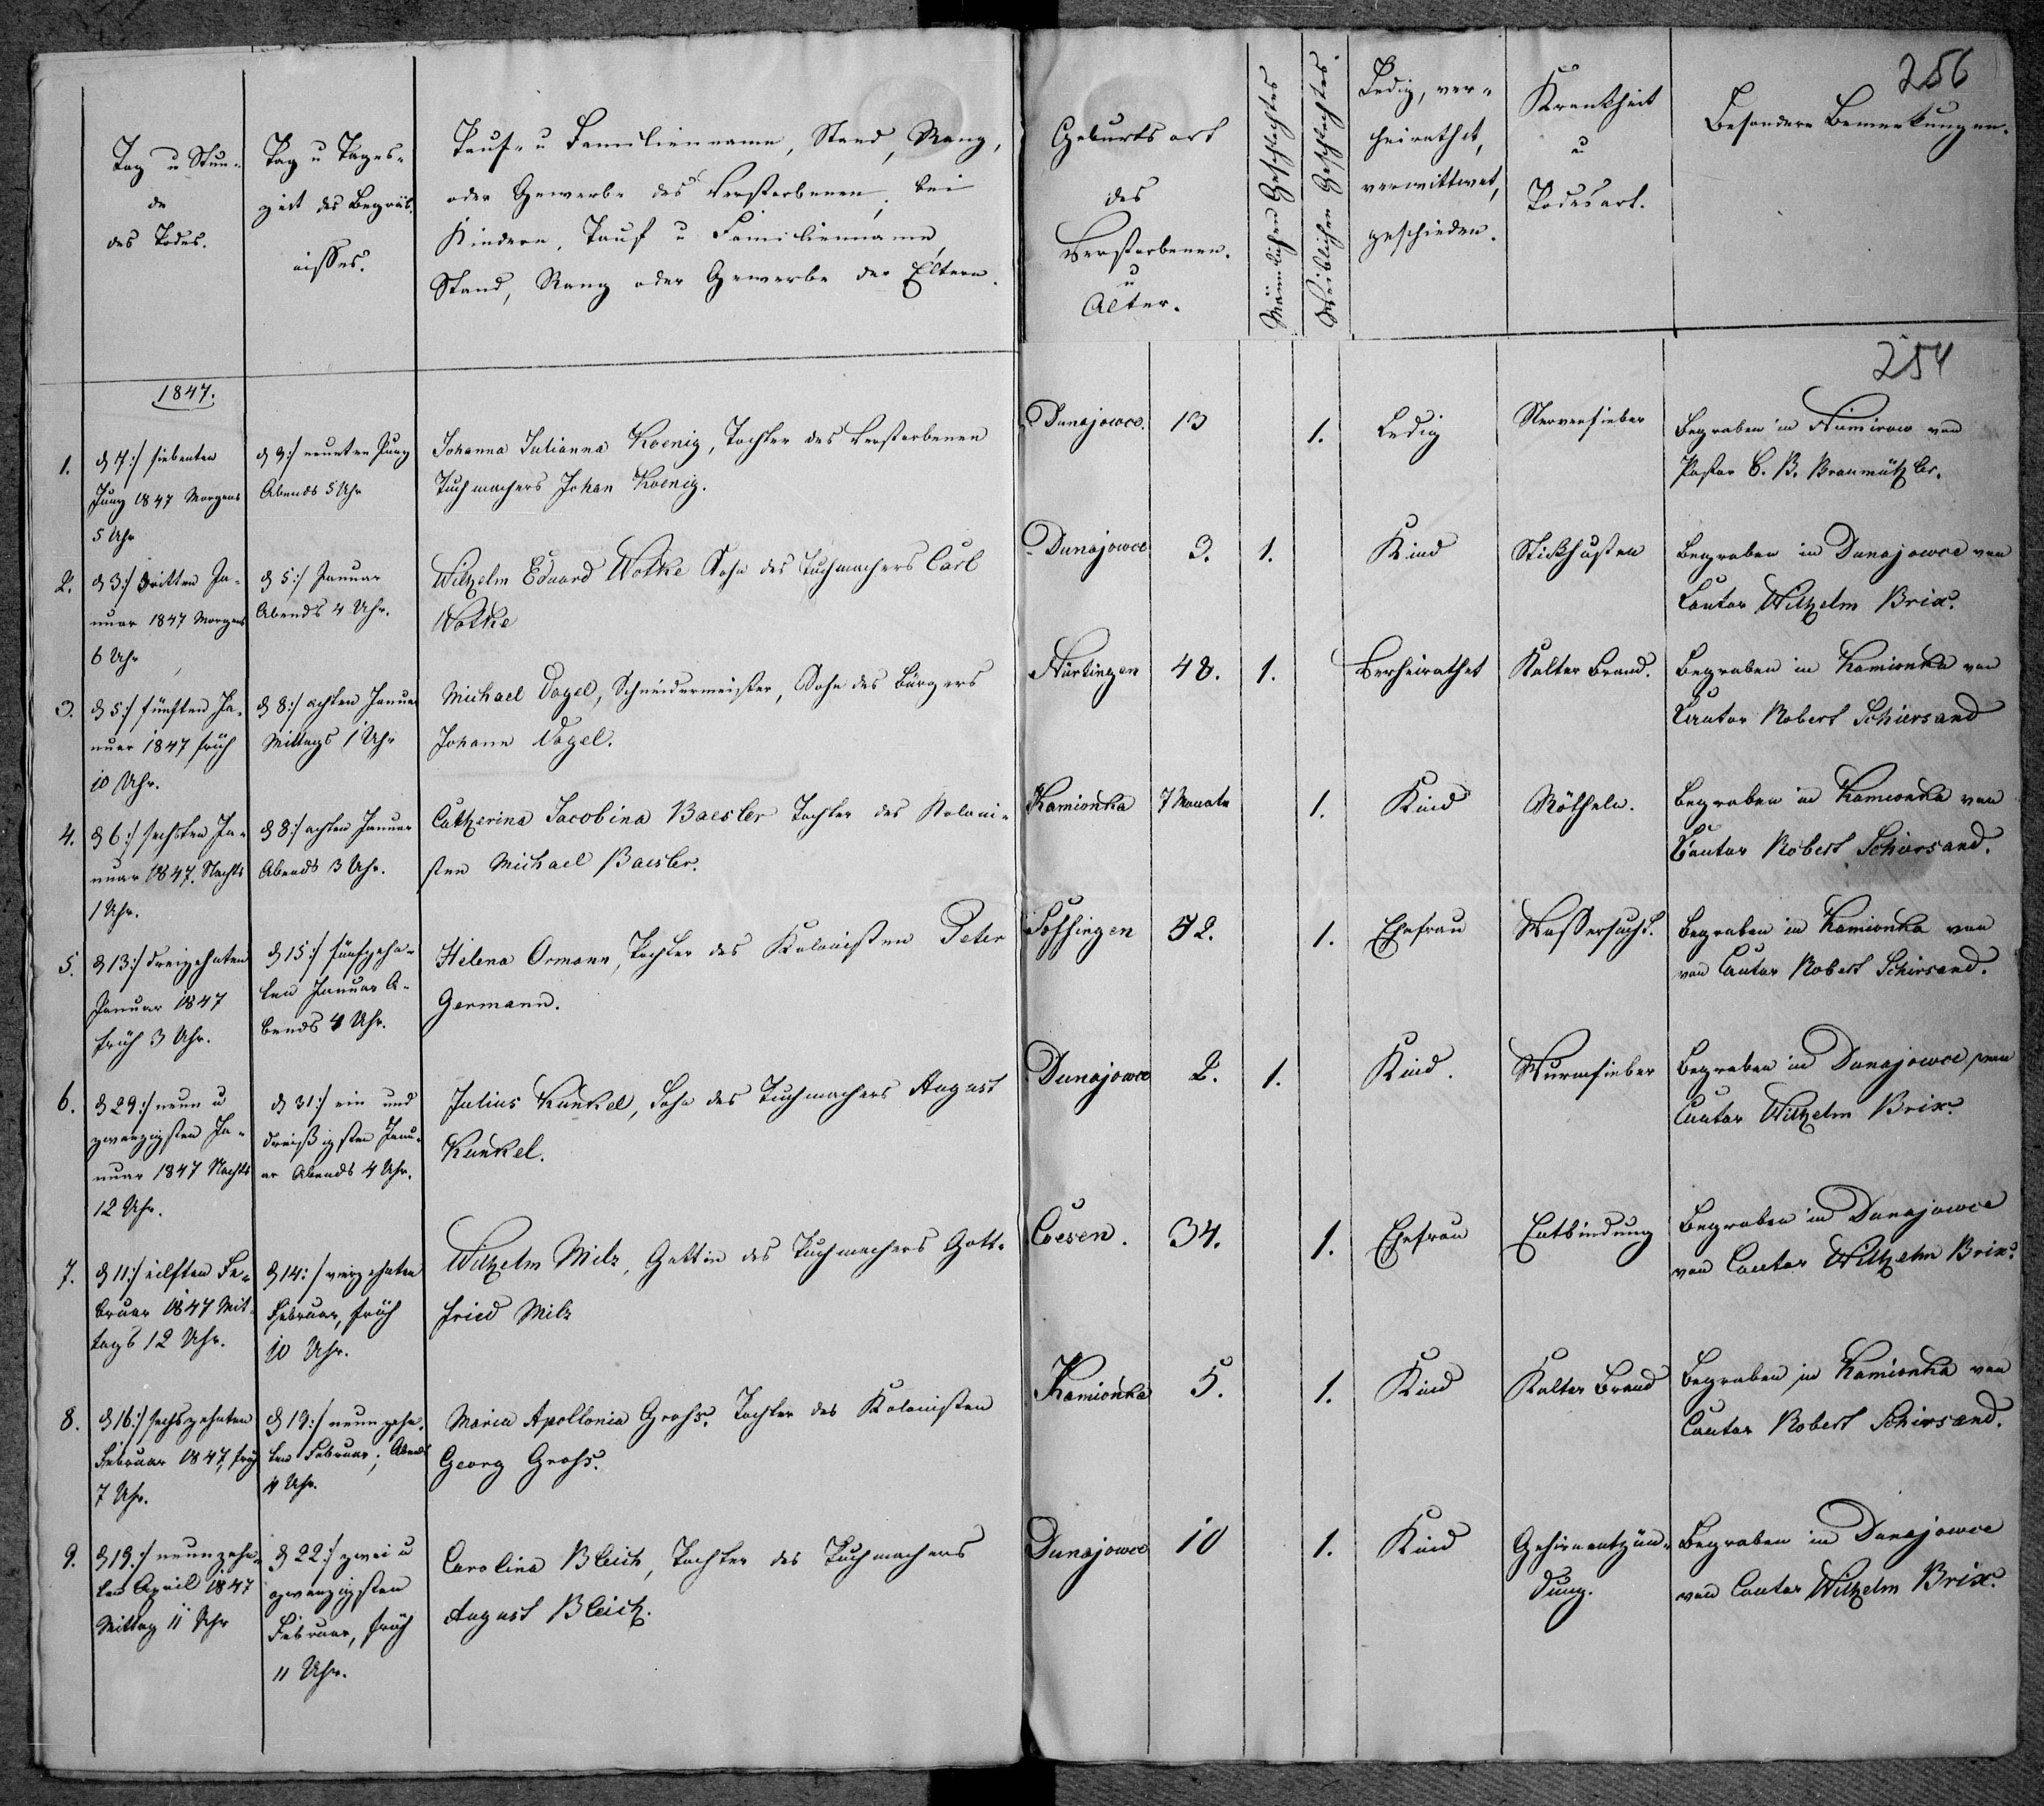 256
Tag u Stun-
de
des Todes.
Tag u Tages-
zeit des Begräb-
nisses.
Tauf- u Familienname, Stand, Rang,
oder Gewerbe des Verstorbenen, bei
Kindern, Tauf u Familienname,
Stand, Rang oder Gewerbe der Eltern.
Geburtsort
des
Verstorbenen.
u
Alter.
Männlichen Geschlechtes
Weiblichen Geschlechtes.
Ledig, ver-
heirathet,
verwittwet,
geschieden.
Krankheit
u
Todesart.
Besondere Bemerkungen.
254
1847.
1.
d 7:/ siebenten
Jung 1847 Morgens
5 Uhr
d 9:/ neunten Jung
Abends 5 Uhr
Johanna Julianna Koenig, Tochter des verstorbenen
Tuchmachers Johan Koenig.
Dunajowce.
13
1.
Ledig
Nervenfieber
Begraben in Nimirow von
Pastor C. B. Braumützler.
2.
d 3:/ dritten Ja-
nuar 1847 Morgens
6 Uhr
d 5:/ Januar
Abends 4 Uhr.
Wilhelm Eduard Wotke Sohn des Tuchmachers Carl
Wotke
Dunajowce
3.
1.
Kind
Stickhusten
Begraben in Dunajowce von
Cantor Wilhelm Brix.
3.
d 5:/ fünften Ja-
nuar 1847 früh
10 Uhr.
d 8:/ achten Januar
Mittags 1 Uhr
Michael Vogel, Schneidermeister, Sohn des Bürgers
Johann Vogel.
Nürtingen
48.
1.
Verheirathet
Kalter Brand.
Begraben in Kamionka von
Cantor Robert Schirsand
4.
d 6:/ sechsten Ja-
nuar 1847. Nachts
1 Uhr.
d 8:/ achten Januar
Abends 3 Uhr.
Catherina Jacobina Baesler Tochter des Koloni-
sten Michael Baesler.
Kamionka
7 Monate
1.
Kind
Rötheln.
Begraben in Kamionka von
Cantor Robert Schirsand.
5.
d 13:/ dreizehnten
Januar 1847
früh 3 Uhr.
d 15:/ fünfzehn-
ten Januar A-
bends 4 Uhr.
Helena Ormann, Tochter des Kolonisten Peter
Germann.
52.
1.
Ehefrau
Wassersucht.
Begraben in Kamionka von
von Cantor Robert Schirsand.
6.
d 29:/ neun u
zwanzigsten Ja-
nuar 1847 Nachts
12 Uhr.
d 31:/ ein und
dreißigsten Janu-
ar Abends 4 Uhr.
Julius Kunkel, Sohn des Tuchmachers August
Kunkel.
Dunajowce
2.
1.
Kind.
Wurmfieber
Begraben in Dunajowce von
Cantor Wilhelm Brix.
7.
d 11:/ eilften Fe-
bruar 1847 Mit-
tags 12 Uhr.
d 14:/ vierzehnten
Februar, früh
10 Uhr.
Wilhelm Milz, Gattin des Tuchmachers Gott-
fried Milz
Coesen.
34.
1.
Ehefrau
Entbindung
Begraben in Dunajowce
von Cantor Wilhelm Brix.
8.
d 16:/ sechszehnten
Februar 1847, früh
7 Uhr.
d 19:/ neunzehn-
ten Februar, Abends
4 Uhr.
Maria Apollonia Grohs. Tochter des Kolonisten
Georg Grohs.
Kamionka
5.
1.
Kind
Kalter Brand
Begraben in Kamionka von
Cantor Robert Schirsand.
9.
d 19:/ neunzehn-
ten April 1847
Mittag 11 Uhr
d 22:/ zwei u
zwanzigsten
Februar, früh
11 Uhr.
Carolina Bleich, Tochter des Tuchmachers
August Bleich.
Dunajowce
10
1.
Kind
Gehirnentzün-
dung.
Begraben in Dunajowce
von Cantor Wilhelm Brix.